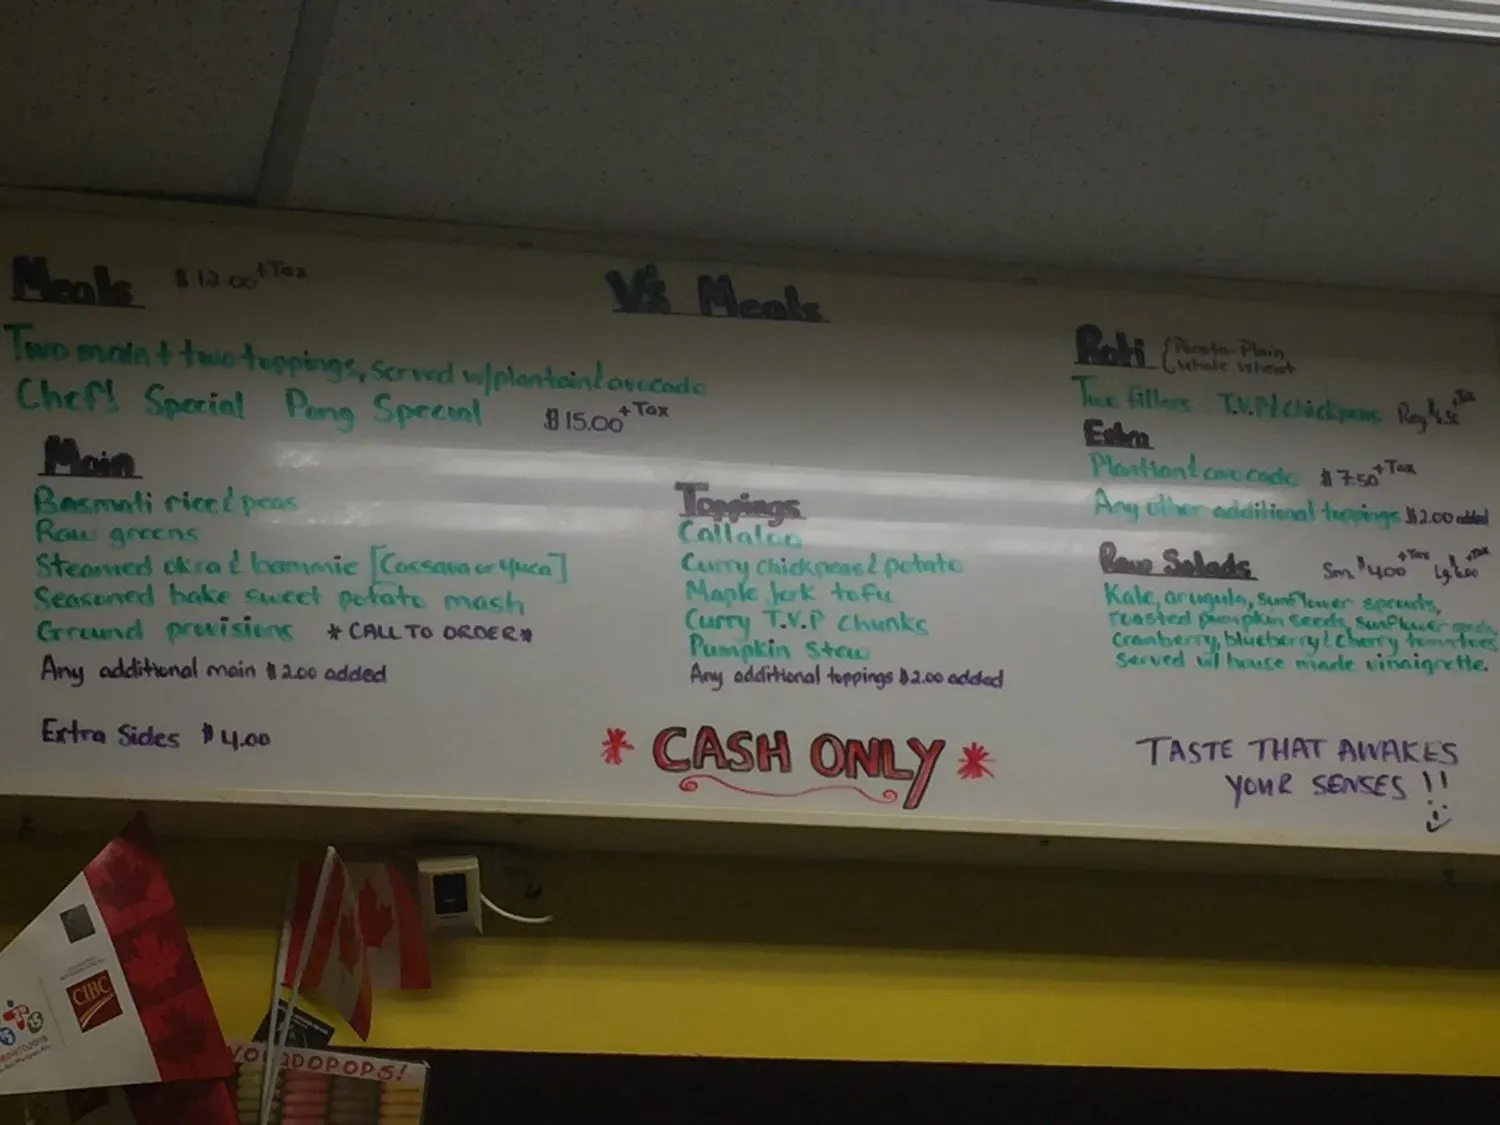 V's Meals
Meals $12.00 + Tax
Two main + two toppings, served w/plantain & avocado
Chef's Special Pang Special $15.00 + Tax
Main
Basmati rice & peas
Raw greens
Steamed okra & bammie [Cassava or Yuca]
Seasoned bake sweet potato mash
Ground provisions *CALL TO ORDER*
Any additional main $2.00 added
Extra Sides $4.00
Toppings
Callaloo
Curry chickpeas & potato
Maple Jerk tofu
Curry T.V.P Chunks
Pumpkin Stew
Any additional toppings $2.00 added
* CASH ONLY *
Roti { Parata-Plain
Whole Wheat
Two fillers T.V.P & Chickpeas Reg + Tax
Extra
Plantian & avocado $7.50 + Tax
Any other additional toppings $2.00 added
Raw Salads Sm $4.00 + Tax Lg + Tax
Kale, arugula, sunflower sprouts,
roasted pumpkin seeds, sunflower seeds,
cranberry, blueberry & cherry tomatoes
Served w/ house made vinaigrette.
TASTE THAT AWAKES
YOUR SENSES !!
CIBC
TORONTO2015
VOODOOPOPS!